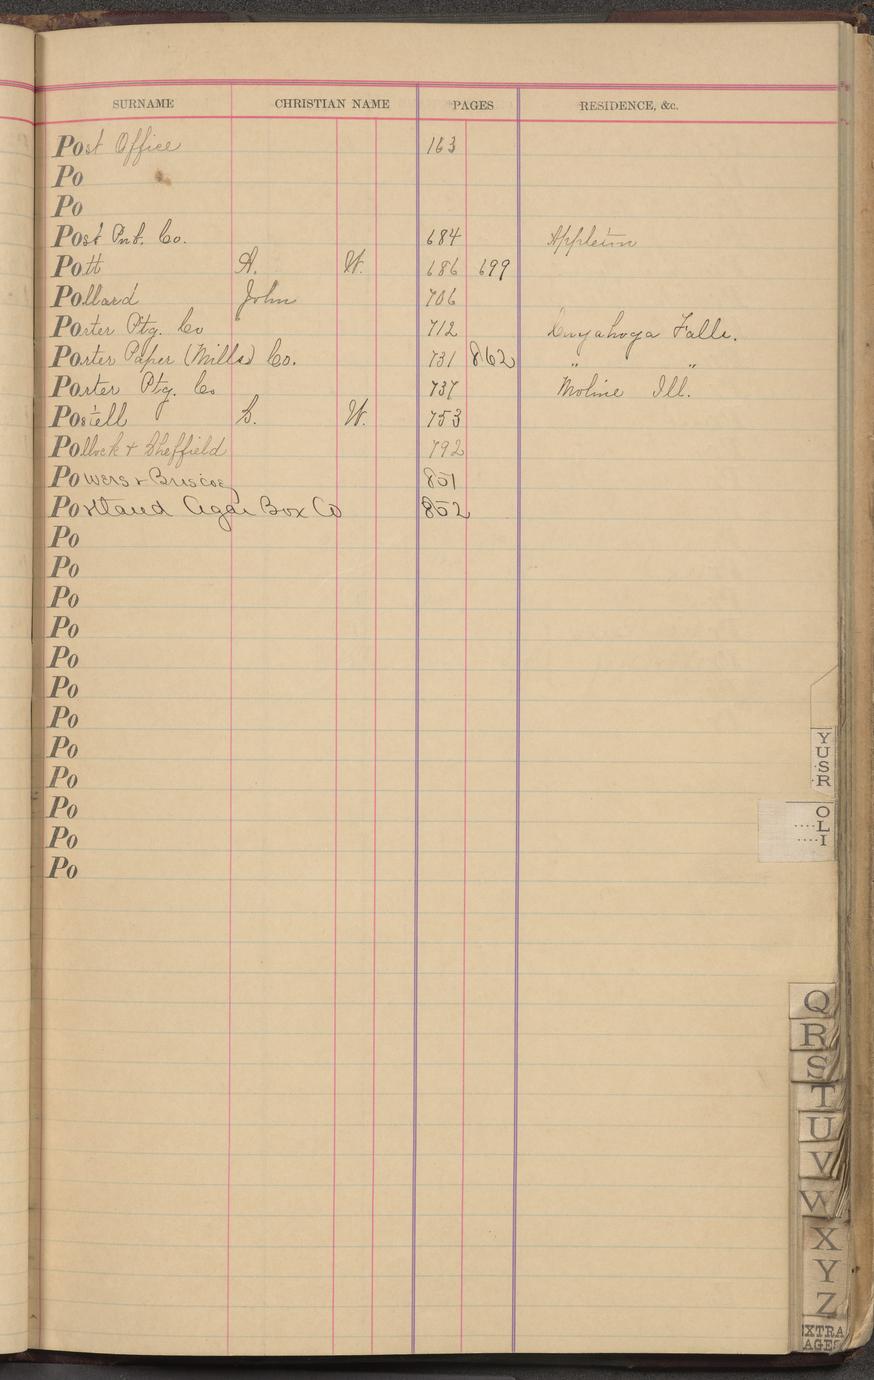 SURNAME CHRISTIAN NAME PAGES RESIDENCE, &c.
Post Office 163
Po
Po
Post Pub. Co. 684 Appleton
Pott A. W. 686 699
Pollard John 706
Porter Ptg. Co 712 Cuyahoga Falls.
Porter Paper (Mills) Co. 731 862 " "
Porter Ptg. Co 737 Moline Ill.
Postell C. W. 753
Pollock & Sheffield 792
Powers & Briscoe 851
Portland Cigar Box Co 852
Po
Po
Po
Po
Po
Po
Po
Po
Po
Po
Po
Po
Y
U
S
R
O
L
I
Q
R
S
T
U
V
W
X
Y
Z
EXTRA
AGES